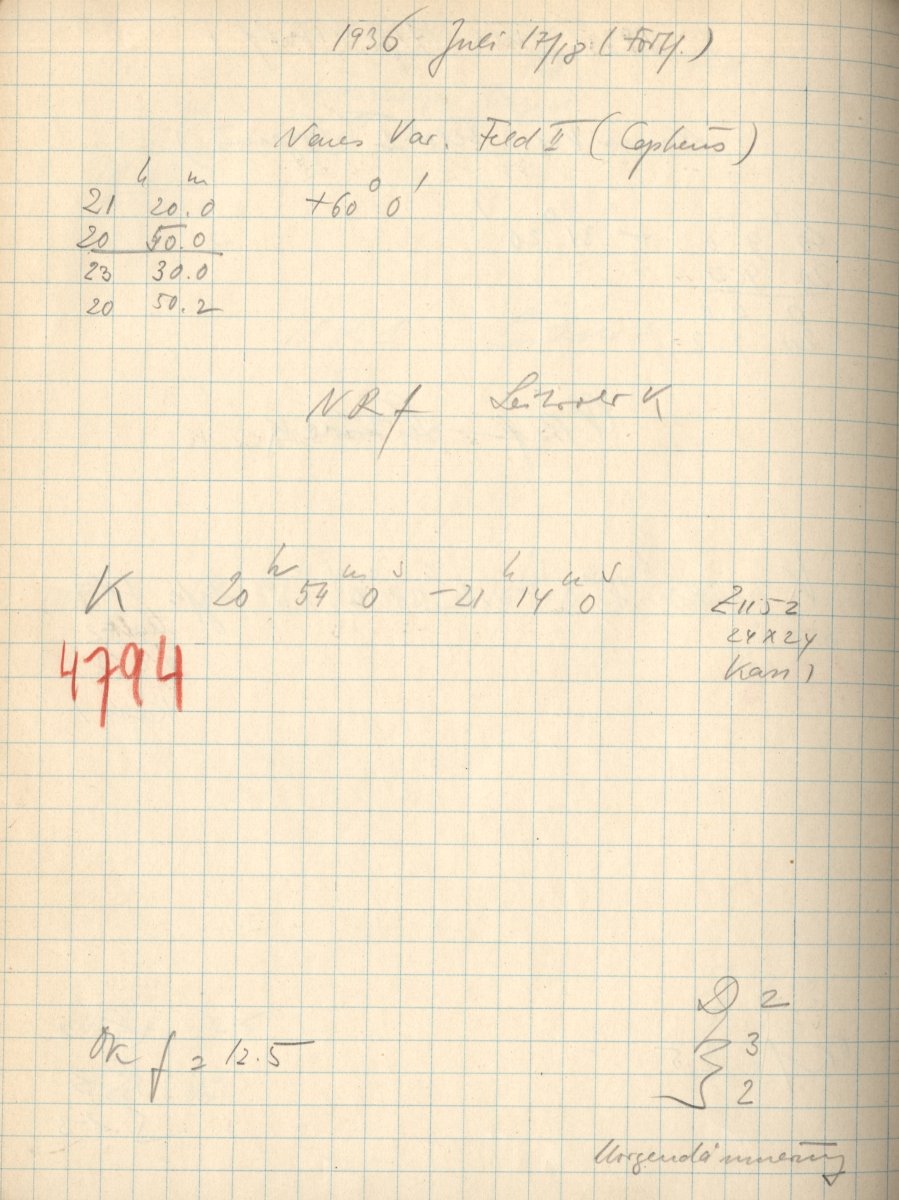 1936 Juli 17/18 (Forts.)
Neues Var. Feld II (Cepheus)
h m
21 20.0 +60° 0'
20 50.0
23 30.0
20 50.2
NR f Leitrohr K
K 20h 54m 0s −21h 14m 0s
Z1152
24x24
Kass 1
4794
Ok f = 12.5
D 2
3
2
Morgendämmerung